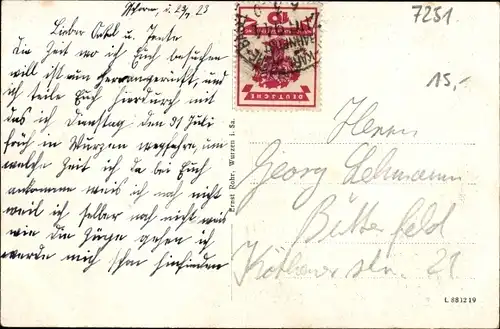 7251
15,-
Lieber Onkel u. Tante
Die Zeit wo ich Euch besuchen
will ist nun herangerückt, und
ich teile Euch hierdurch mit
das ich Dienstag den 31 Juli
früh in Wurzen wegfahre, um
welche Zeit ich da bei Euch
ankomme weis ich noch nicht
weil ich selber noch nicht weis
wie die Züge gehen ich
werde mich schon hinfinden
DEUTSCHE
Ernst Rohr, Wurzen i. Sa.
Herrn
Georg Lehmann
Bitterfeld
Köthener str. 21
L 881219